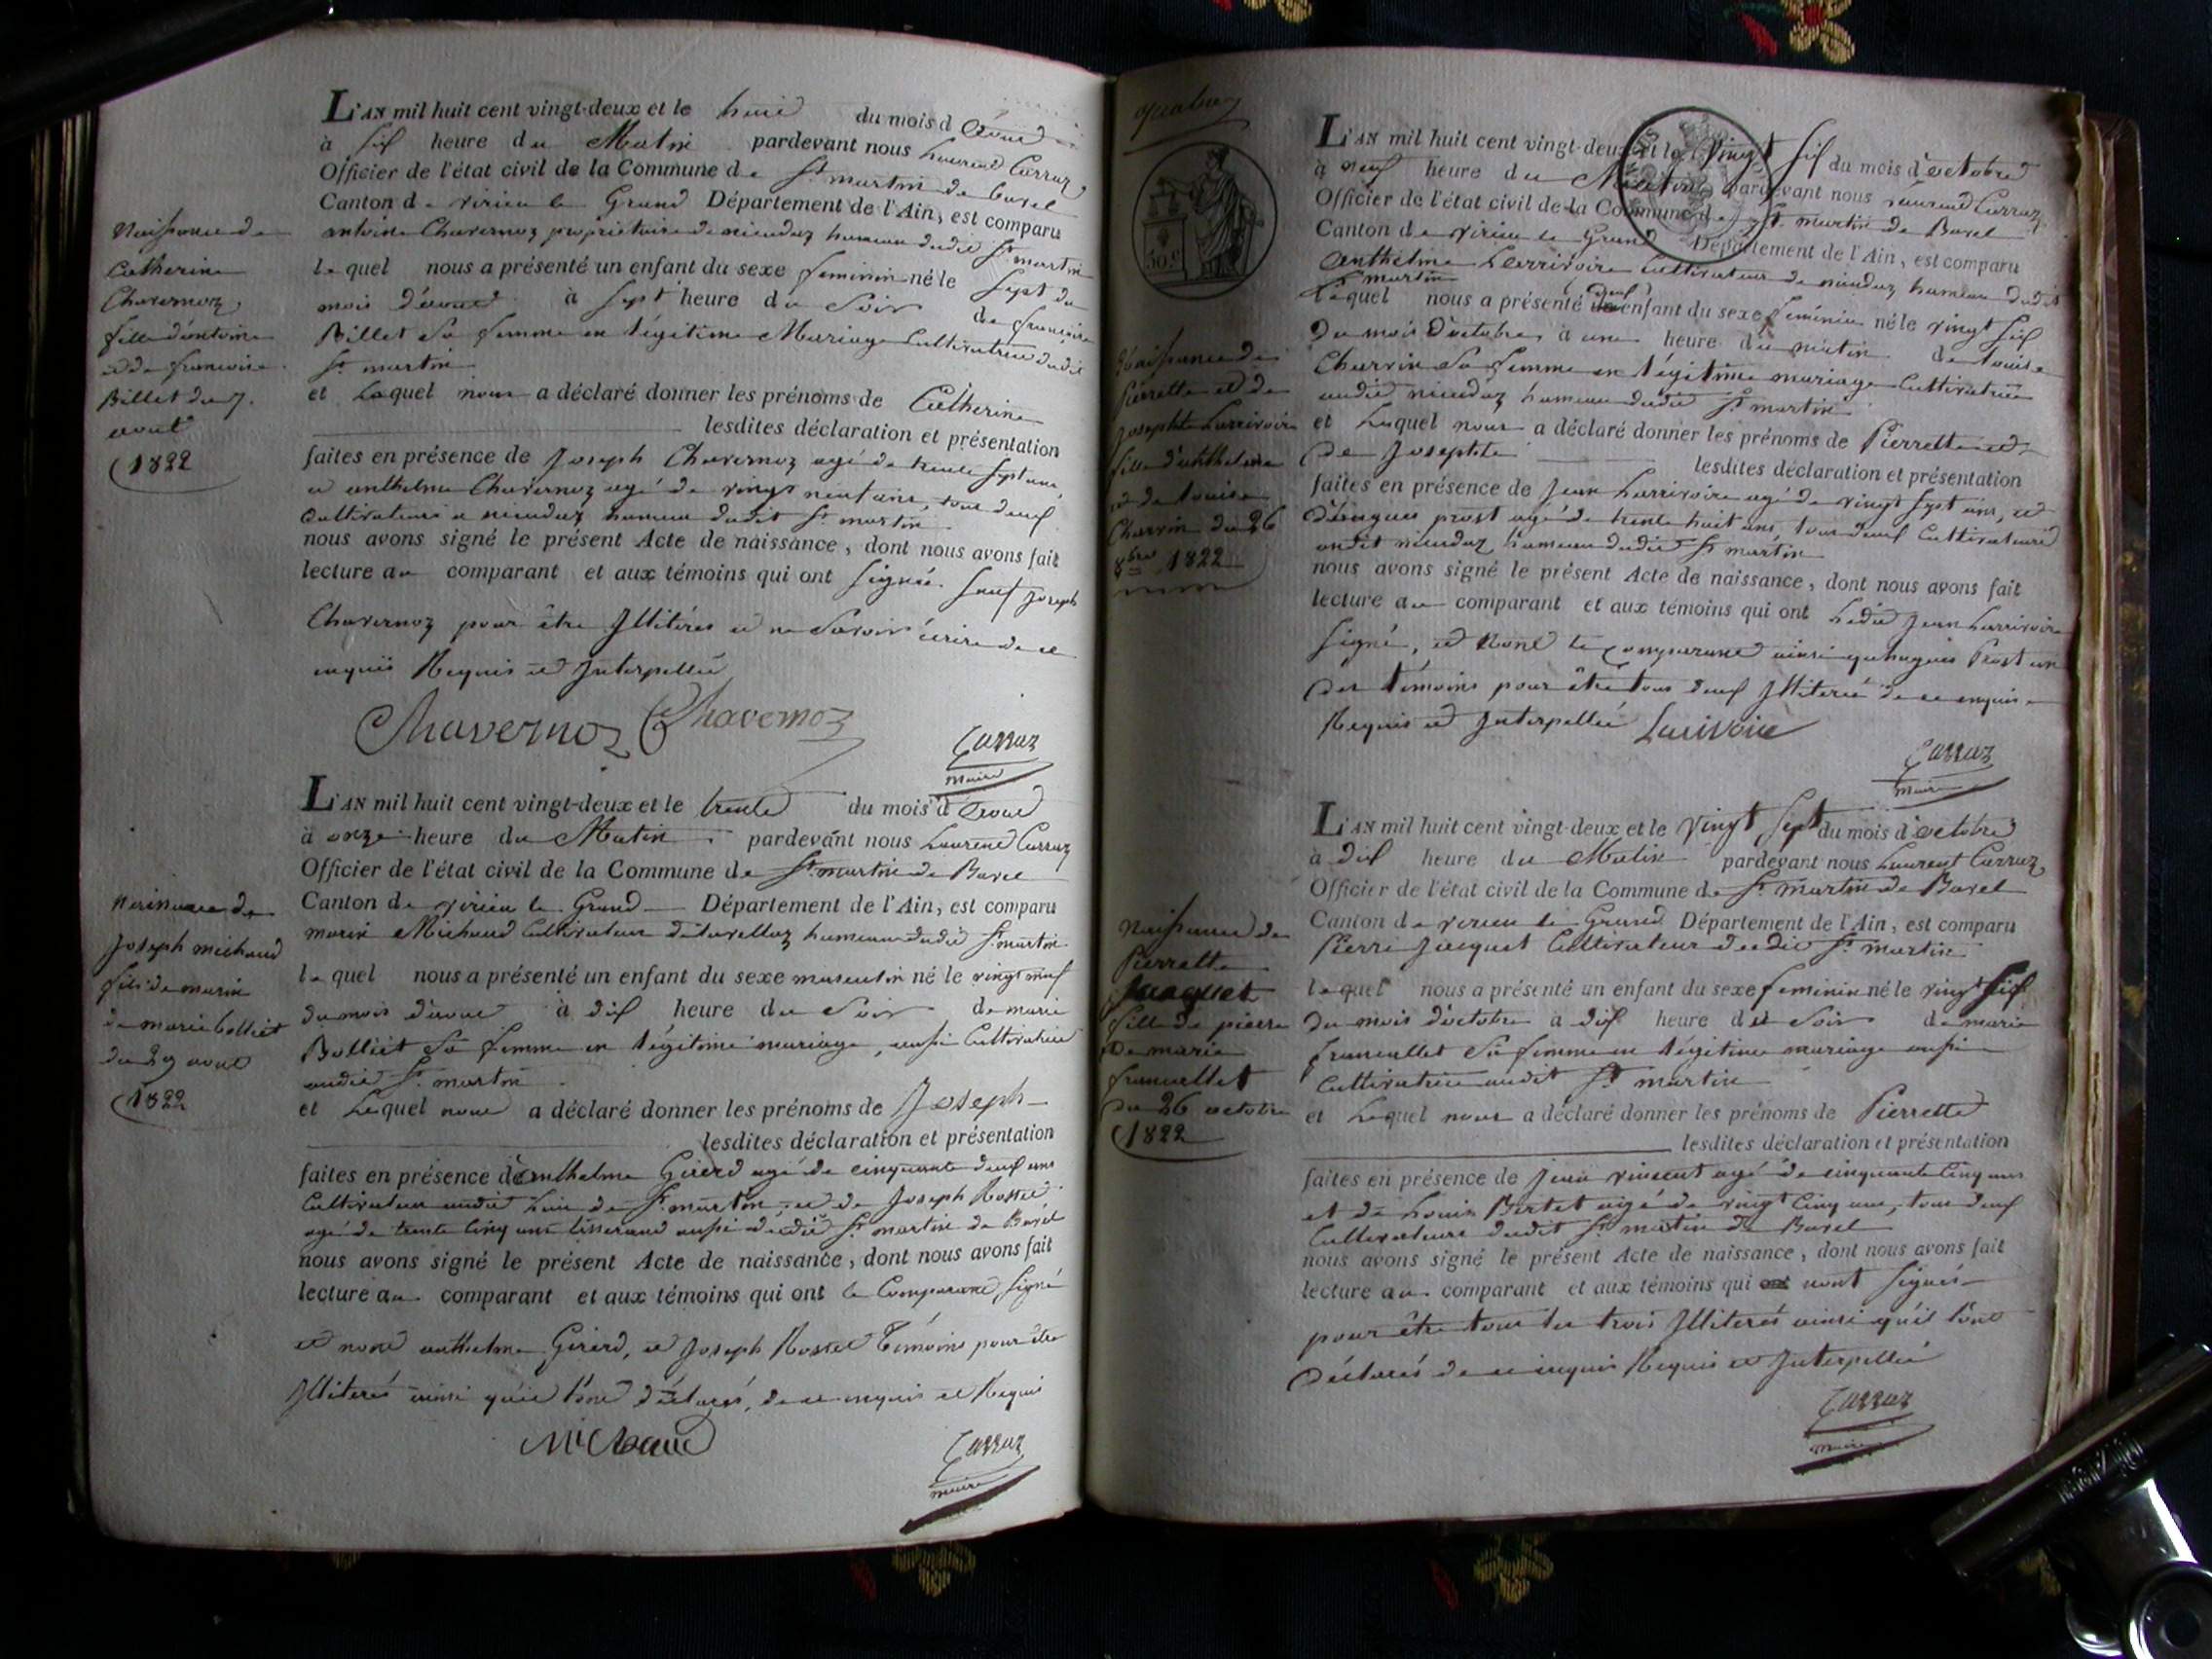 L'AN mil huit cent vingt-deux et le huit du mois d'Aout
à six heure du Matin pardevant nous Laurend Carraz
Officier de l'état civil de la Commune de St martin de Bavel
Canton de virieu le Grand Département de l'Ain, est comparu
antoine Chavernoz propriétaire de hameau dudit St martin
lequel nous a présenté un enfant du sexe feminin né le sept du
mois d'aout à sept heure du Soir de francoise
Billet Sa femme en légitime Mariage Cultivatrice dudit
St martin
et Lequel nous a déclaré donner les prénoms de Catherine
lesdites déclaration et présentation
faites en présence de Joseph Chavernoz agé de trente sept ans
et anthelme Chavernoz agé de vingt neuf ans, tous deux
Cultivateurs a hameau dudit St martin
nous avons signé le présent Acte de naissance, dont nous avons fait
lecture au comparant et aux témoins qui ont Signés Sauf Joseph
Chavernoz pour être Illitérés et ne Savoir écrire de ce
enquis Requis et Interpellé
Chavernoz Chavernoz
Carraz
maire
Naissance de
Catherine
Chavernoz
fille d'antoine
et de francoise
Billet du 7.
aout
1822
L'AN mil huit cent vingt-deux et le trente du mois d'Aout
à onze heure du Matin pardevant nous Laurend Carraz
Officier de l'état civil de la Commune de St martin de Bavel
Canton de virieu le Grand Département de l'Ain, est comparu
marin Michaud Cultivateur de hameau dudit St martin
lequel nous a présenté un enfant du sexe masculin né le vingt neuf
du mois d'aout à dix heure du Soir de marie
Bolliet Sa femme en légitime mariage, aussi Cultivatrice
audit St martin
et Lequel nous a déclaré donner les prénoms de Joseph
lesdites déclaration et présentation
faites en présence d'anthelme Girerd agé de cinquante deux ans
Cultivateur audit Lieu de St martin et de Joseph Rosset
agé de trente Cinq ans tisserand aussi dudit St martin de Bavel
nous avons signé le présent Acte de naissance, dont nous avons fait
lecture au comparant et aux témoins qui ont le Comparant, Signé
et none anthelme Girerd, et Joseph Rosset Témoins pour être
Illiterés ainsi qu'il l'ont déclarés, de ce enquis et Requis
Michaud
Carraz
maire
Joseph michaud
fils de marin
de marie bolliet
du 29 aout
1822
50 c
L'AN mil huit cent vingt-deux et le Vingt six du mois d'octobre
à neuf heure du Matin pardevant nous Laurend Carraz
Officier de l'état civil de la Commune de St martin de Bavel
Canton de virieu le Grand Département de l'Ain, est comparu
Anthelme Larrivoire Cultivateur de hameau dudit
St martin
Lequel nous a présenté deux enfant du sexe feminin né le vingt six
du mois d'octobre à une heure du matin de Louise
Charvin Sa femme en légitime mariage Cultivatrice
audit hameau dudit St martin
et Lequel nous a déclaré donner les prénoms de Pierrette et
de Josephte
lesdites déclaration et présentation
faites en présence de Jean Larrivoire agé de vingt sept ans, et
prost agé de trente huit ans, tous deux Cultivateurs
audit hameau dudit St martin
nous avons signé le présent Acte de naissance, dont nous avons fait
lecture au comparant et aux témoins qui ont Ledit Jean Larrivoire
Signé, et None le Comparant ainsi Prost un
des témoins pour être tous deux Illiteré de ce enquis
Requis et Interpellé Larivoire
Carraz
maire
Naissance de
Pierrette et de
Josephte Larrivoire
fille d'anthelme
et de Louise
Charvin du 26
8bre 1822
L'AN mil huit cent vingt-deux et le Vingt Sept du mois d'octobre
à Dix heure du Matin pardevant nous Laurent Carraz
Officier de l'état civil de la Commune de St martin de Bavel
Canton de virieu le Grand Département de l'Ain, est comparu
Pierre Jacquet Cultivateur dudit St martin
lequel nous a présenté un enfant du sexe feminin né le vingt six
du mois d'octobre à dix heure du Soir de marie
francillet Sa femme en légitime mariage aussi
Cultivatrice audit St martin
et Lequel nous a déclaré donner les prénoms de Pierrette
lesdites déclaration et présentation
faites en présence de Jean vincent agé de cinquante Cinq ans
et de Louis Bertet agé de vingt Cinq ans, tous deux
Cultivateurs dudit St martin de Bavel
nous avons signé le présent Acte de naissance, dont nous avons fait
lecture au comparant et aux témoins qui ont nont Signés
pour être tous les trois Illiterés ainsi qu'il l'ont
déclarés de ce enquis Requis et Interpellé
Carraz
maire
Naissance de
Pierrette
Jacquet
fille de pierre
de marie
francillet
du 26 octobre
1822